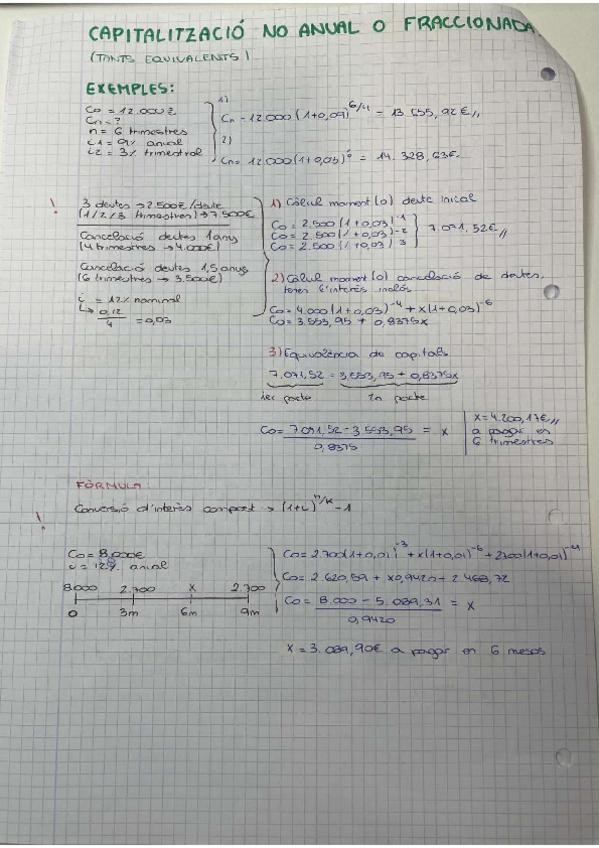 CAPITALITZACIÓ NO ANUAL O FRACCIONADA.
(TANTS EQUIVALENTS)
EXEMPLES:
Co = 12.000€
Cn = ?
n = 6 trimestres
i1 = 9% anual
i2 = 3% trimestral
1)
Cn = 12.000 (1+0,09)^6/4 = 13.655,92€//
2)
Cn = 12.000 (1+0,03)^6 = 14.328,63€
!
3 deutes → 2.500€/deute
(1/2/3 trimestres) → 7.500€
Cancelació deutes 1 any
(4 trimestres → 4.000€)
Cancelació deutes 1,5 anys
(6 trimestres → 3.500€)
i = 12% nominal
↳ 0,12/4 = 0,03
1) Càlcul moment (0) deute inicial
Co = 2.500 (1+0,03)^-1
Co = 2.500 (1+0,03)^-2
Co = 2.500 (1+0,03) 3
7.071,52€//
2) Càlcul moment (0) cancelació de deutes.
Co = 4.000 (1+0,03)^-4 + x(1+0,03)^-6
Co = 3.553,95 + 0,8375x
3) Equivalència de capitals
7.071,52 = 3.553,95 + 0,8375x
1er parte 2n parte
Co = 7071,52 - 3.553,95 / 0,8375 = x
x = 4.200,17€//
a pagar en
6 trimestres
FÓRMULA:
Conversió d'interès compost → (1+i)^n/k - 1
!
Co = 8.000€
i = 12% anual
8.000 2.700 x 2.700
0 3m 6m 9m
Co = 2.700(1+0,01)^-3 + x(1+0,01)^-6 + 2700(1+0,01)^-9
Co = 2.620,59 + x0,9420 + 2.468,72
Co = 8.000 - 5.089,31 / 0,9420 = x
x = 3.089,90€ a pagar en 6 mesos